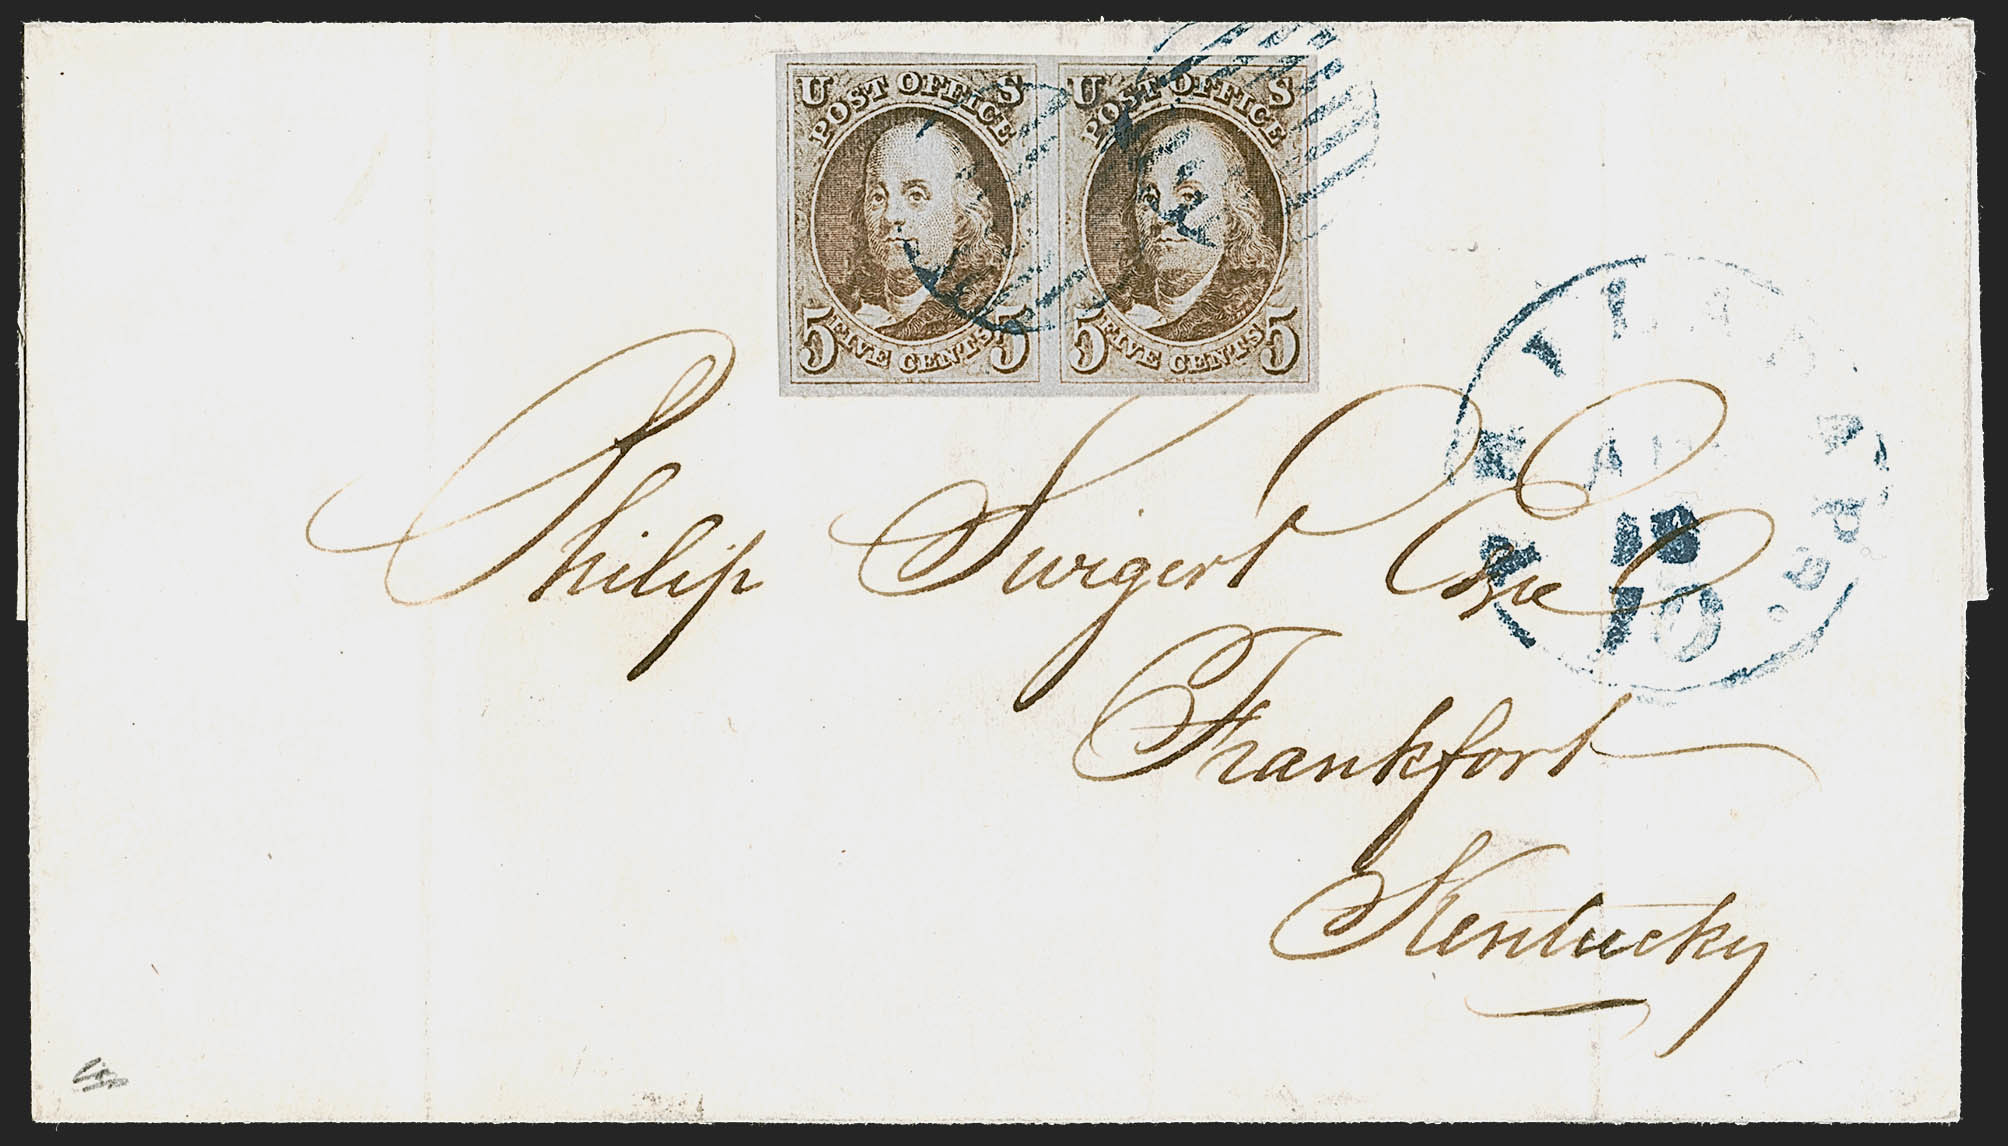 U S U S
POST OFFICE POST OFFICE
5 FIVE CENTS 5 5 FIVE CENTS 5
PHILADELPHIA Pa.
10
Philip Swigert Esqe
Frankfort
Kentucky